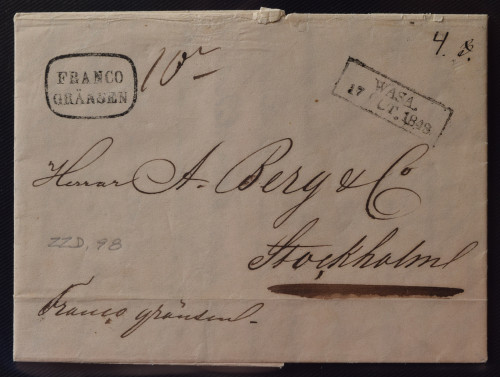 FRANCO
GRÄNSEN
10
4.
WASA.
17 OCT. 1849.
Herrar A. Berg & Co
Stockholm
ZZD, 98
Franco gränsen